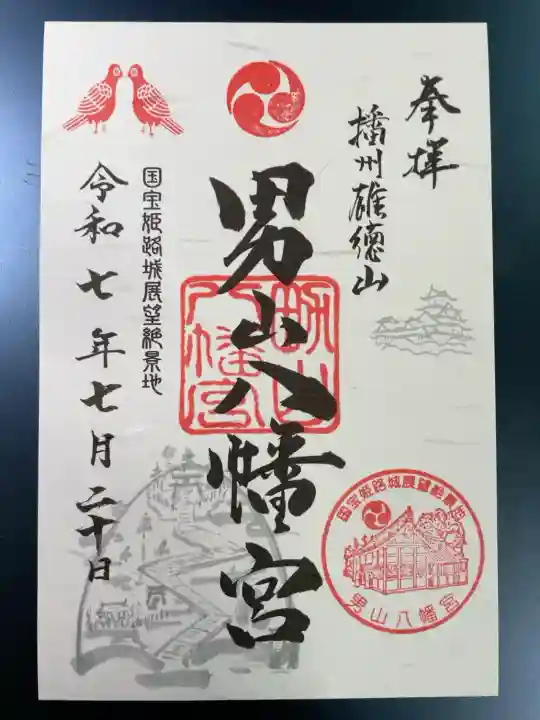 奉拝
播州雄徳山
男山八幡宮
男山八幡宮
国宝姫路城展望絶景地
令和七年七月二十日
国宝姫路城展望絶景地
男山八幡宮